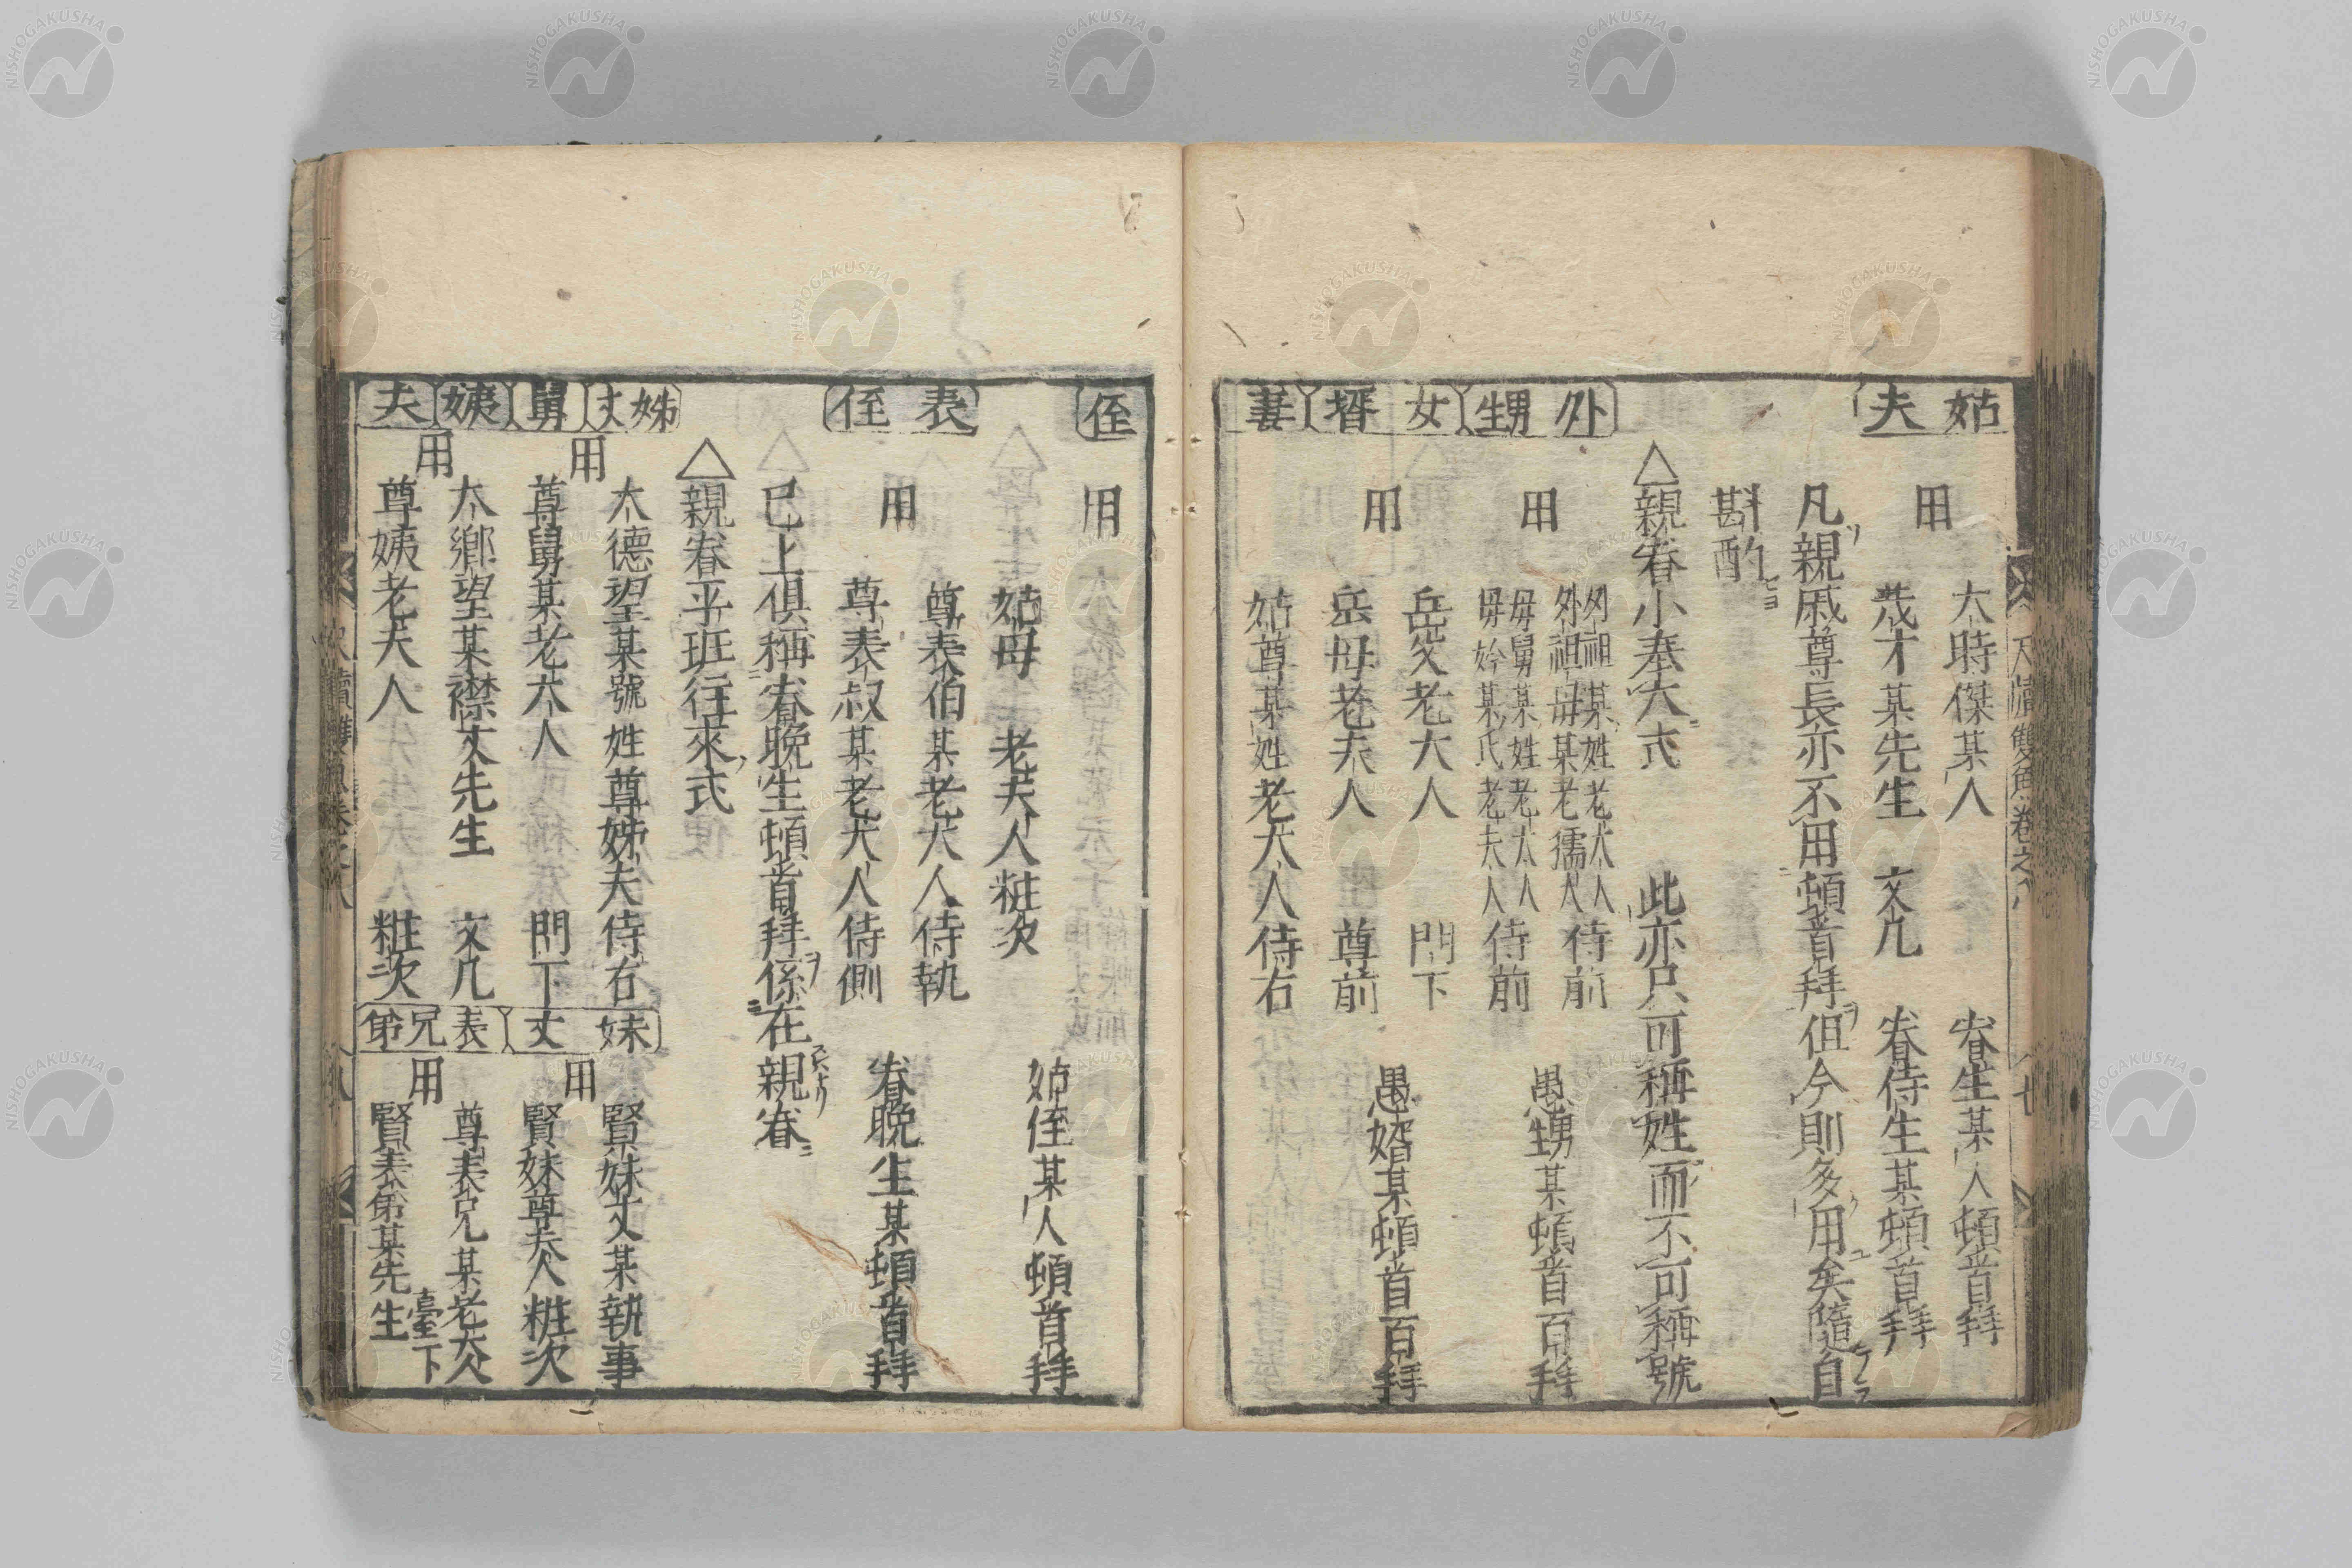 尺牘雙魚卷之八
七
姑夫
用
大時傑某人
眷生某人頓首拜
茂才某先生 文几
眷侍生某頓首拜
凡親戚尊長亦不用頓首拜但今則多用矣隨自
斟酌
△親眷小奉大式 此亦只可稱姓而不可稱號
外甥
用
外祖某姓老大人
外祖母某老孺人
侍前
母舅某姓老大人
母妗某氏老夫人
侍前
愚甥某頓首百拜
女壻
用
岳父老大人 門下
岳母老夫人 尊前
愚婿某頓首百拜
妻姪
用
姑尊某姓老大人侍右
姑母 老夫人粧次
姑侄某人頓首拜
表侄
用
尊表伯某老大人侍執
尊表叔某老大人侍側
眷晚生某頓首拜
已上俱稱眷晚生頓首拜係在親眷
△親眷平班往來式
姊丈
用
大德望某號姓尊姊夫侍右
舅
尊舅某老大人 門下
姨夫
用
大鄉望某襟丈先生 文几
尊姨老夫人 粧次
妹丈
用
賢妹丈某執事
賢妹尊夫人粧次
表兄弟
用
尊表兄某老大人
賢表弟某先生
臺下